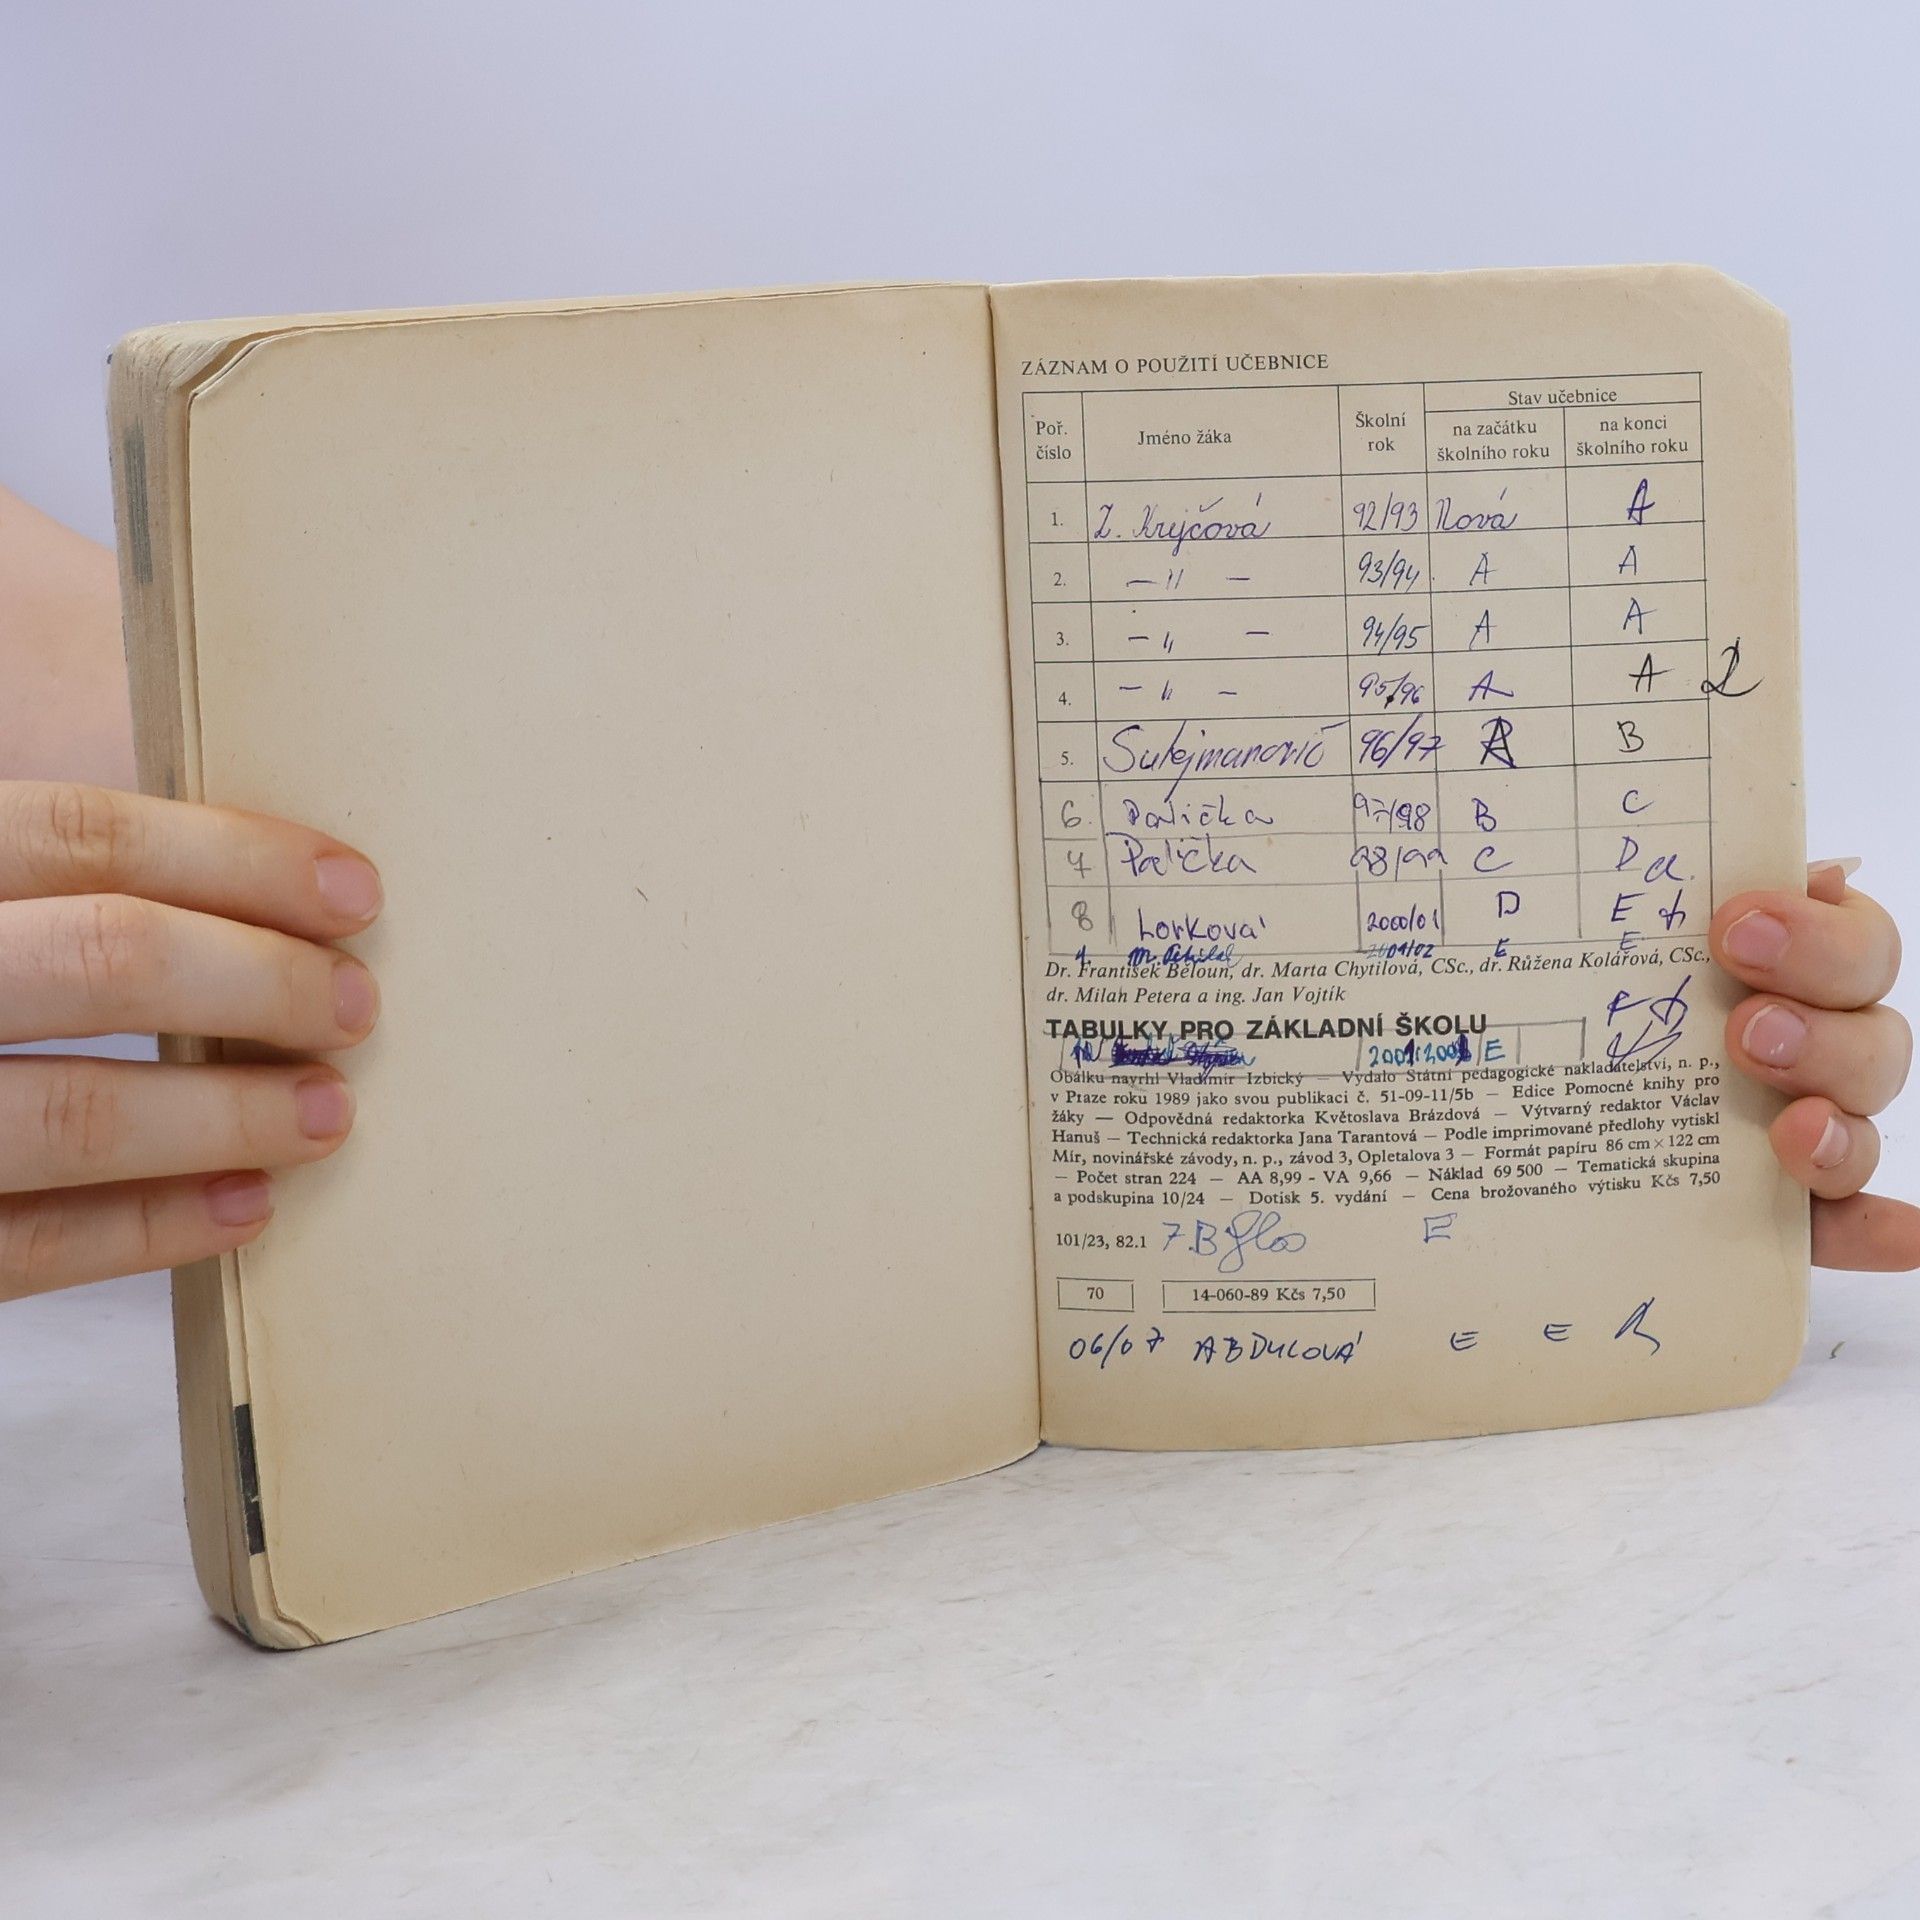 ZÁZNAM O POUŽITÍ UČEBNICE
Poř. číslo Jméno žáka Školní rok Stav učebnice
na začátku školního roku na konci školního roku
1. Z. Krejčová 92/93 Nová A
2. — " — 93/94 A A
3. — " — 94/95 A A
4. — " — 95/96 A A
5. Sulejmanovič 96/97 A B
6. Palička 97/98 B C
7 Palička 98/99 C D
8 Lorková 2000/01 D E
01/02 E E
Dr. František Běloun, dr. Marta Chytilová, CSc., dr. Růžena Kolářová, CSc.,
dr. Milan Petera a ing. Jan Vojtík
TABULKY PRO ZÁKLADNÍ ŠKOLU
E
Obálku navrhl Vladimír Izbický — Vydalo Státní pedagogické nakladatelství, n. p.,
v Praze roku 1989 jako svou publikaci č. 51-09-11/5b — Edice Pomocné knihy pro
žáky — Odpovědná redaktorka Květoslava Brázdová — Výtvarný redaktor Václav
Hanuš — Technická redaktorka Jana Tarantová — Podle imprimované předlohy vytiskl
Mír, novinářské závody, n. p., závod 3, Opletalova 3 — Formát papíru 86 cm × 122 cm
— Počet stran 224 — AA 8,99 - VA 9,66 — Náklad 69 500 — Tematická skupina
a podskupina 10/24 — Dotisk 5. vydání — Cena brožovaného výtisku Kčs 7,50
101/23, 82.1 7.B E
70 14-060-89 Kčs 7,50
06/07 ABDULOVÁ E E